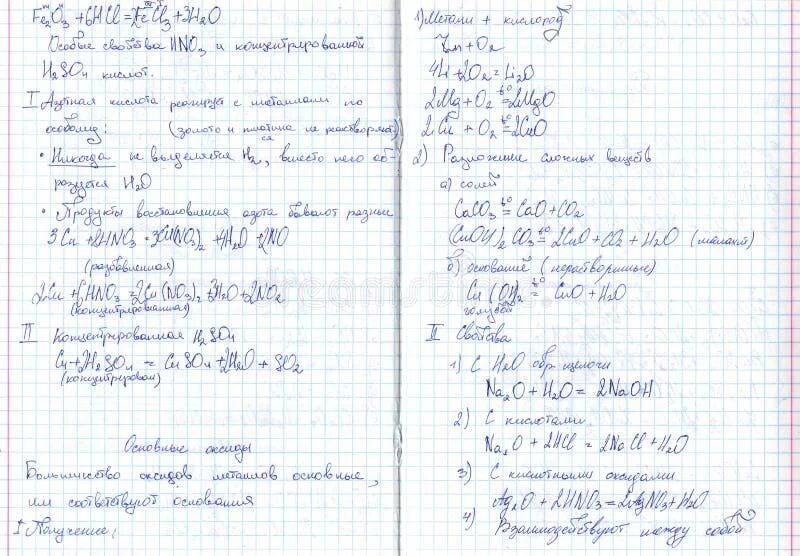 Fe₂O₃ + 6HCl = 2FeCl₃ + 3H₂O
Особые свойства HNO₃ и концентрированной
H₂SO₄ кислот.
I Азотная кислота реагирует с металлами по
особому: (золото и платина не растворяются)
• Никогда не выделяется H₂, вместо него об-
разуется H₂O
• Продукты восстановления азота бывают разные
3Cu + 8HNO₃ = 3Cu(NO₃)₂ + 4H₂O + 2NO
(разбавленная)
Cu + HNO₃ = Cu(NO₃)₂ + H₂O + 2NO₂
(концентрированная)
II Концентрированная H₂SO₄
Cu + 2H₂SO₄ = CuSO₄ + 2H₂O + SO₂
(концентрирован)
Основные оксиды
Большинство оксидов металлов основные,
им соответствуют основания
I Получение:
1) Металл + кислород
+ O₂
4Li + O₂ = Li₂O
2Mg + O₂ =t°= 2MgO
2Cu + O₂ =t°= 2CuO
2) Разложение сложных веществ
а) солей
CaCO₃ =t°= CaO + CO₂
(CuOH)₂CO₃ =t°= 2CuO + CO₂ + H₂O (малахит)
б) оснований (нерастворимые)
Cu(OH)₂ =t°= CuO + H₂O
голубой
II Свойства
1) С H₂O обр. щелочи
Na₂O + H₂O = 2NaOH
2) С кислотами
Na₂O + 2HCl = 2NaCl + H₂O
3) С кислотными оксидами
Ag₂O + 2HNO₃ = 2AgNO₃ + H₂O
4) Взаимодействуют между собой
dreamstime